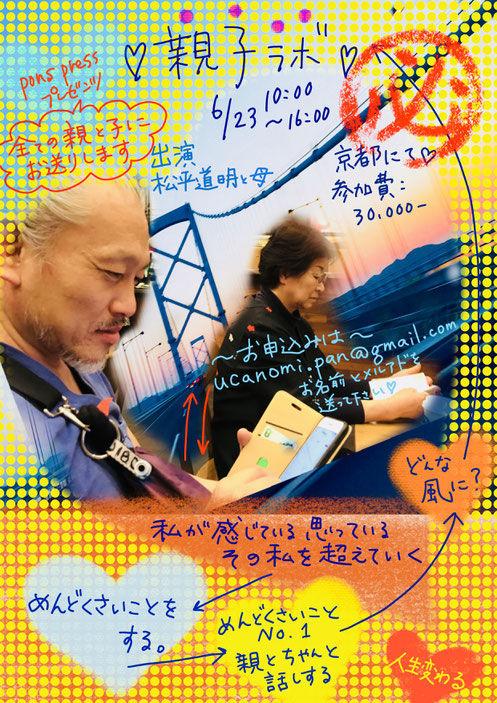 ♡親子ラボ♡
6/23 10:00
〜16:00
必
pons press
プレゼンツ
全ての親と子に
お送りします
出演
松平道明と母
京都にて♡
参加費:
30,000-
〜お申込みは〜
ucanomi.pan@gmail.com
お名前とメルアドを
送って下さい♡
どんな
風に?
私が感じている思っている
その私を超えていく
めんどくさいことを
する。
めんどくさいこと
No.1
親とちゃんと
話しする
人生変わる